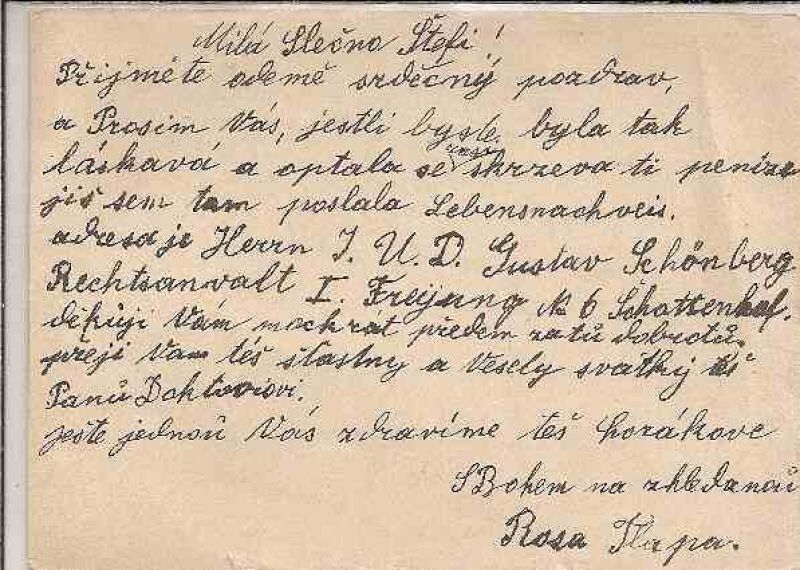 Milá Slečno Štefi!
Přijměte odemě srdečný pozdrav,
a Prosim Vás, jestli byste byla tak
láskavá a optala se skrzeva ti penize
jiš sem tam poslala Lebensnachveis.
adresa je Herrn J. U. D. Gustav Schönberg
Rechtsanvalt I. Freijung № 6 Schottenhof.
děkuji Vám mockrát předem za tů dobrotů.
přeji Vam těš štastny a Vesely svátky těš
Panů Doktorovi.
ješte jednoů Vás zdravíme těš horákove
S Bohem na zhledanoů
Rosa Tlapa.